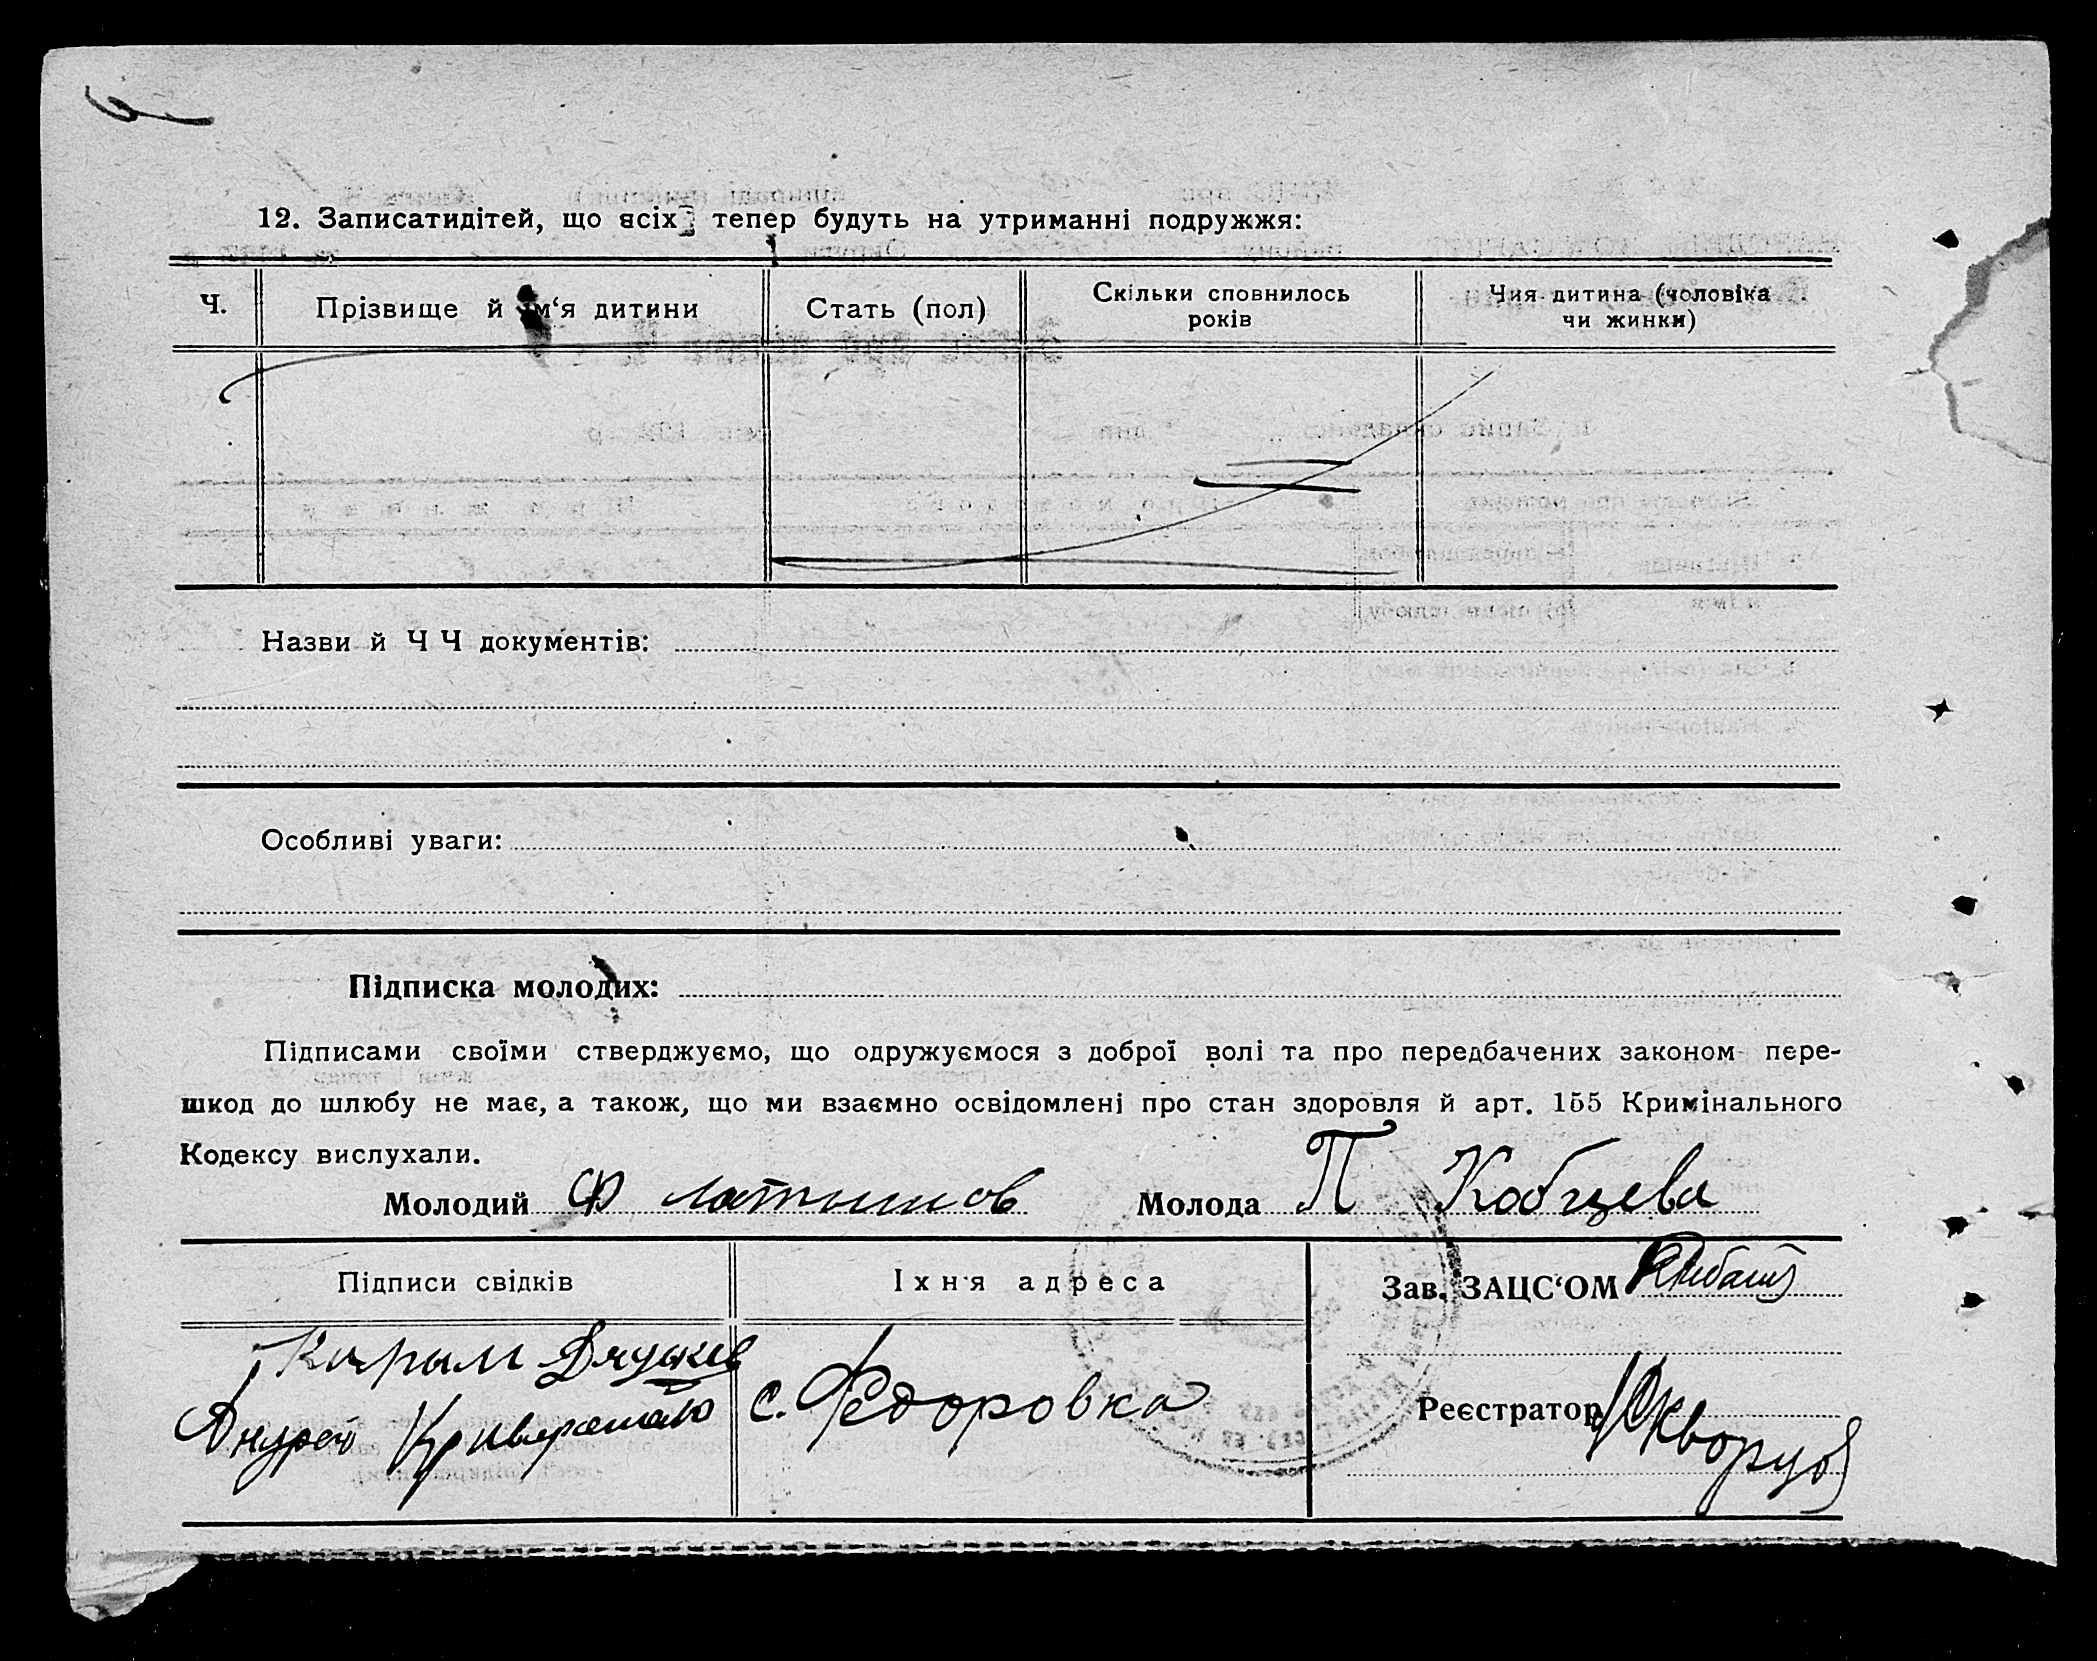 12. Записатидітей, що всіх тепер будуть на утриманні подружжя:
Ч.
Прізвище й ім‘я дитини
Стать (пол)
Скільки сповнилось
років
Чия дитина (чоловіка
чи жинки)
Назви й Ч Ч документів:
Особливі уваги:
Підписка молодих:
Підписами своїми стверджуємо, що одружуємося з доброї волі та про передбачених законом пере-
шкод до шлюбу не має, а також, що ми взаємно освідомлені про стан здоровля й арт. 155 Кримінального
Кодексу вислухали.
Молодий Ф
Молода П Кобцева
Підписи свідків
Їхня адреса
Зав. ЗАЦС‘ОМ
Андрей
с. Федоровка
Реєстратор